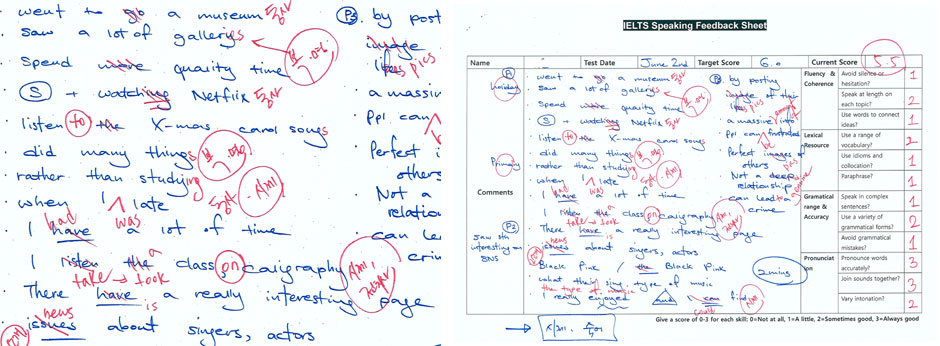 went to go a museum
saw a lot of gallerys
Spend more quarity time
S + watching Netflix
listen to the X-mas carol songs
did many things
rather than studying
when I late
was
had
I have a lot of time
I risten the class on caligraphy
take → took
There have a really interesting page
is
news
issues about singers, actors
P3 by post
image
likes pics
a massiv
Ppl can
Perfect i
others
Not a
relation
can lea
crim
IELTS Speaking Feedback Sheet
Name
Test Date
June 2nd
Target Score
6.0
Current Score
5.5
Holiday
Primary
Comments
P2
went to go a museum
saw a lot of gallerys
Spend more quarity time
S + watching Netflix
listen to the X-mas carol songs
did many things
rather than studying
when I late
was
had
I have a lot of time
I risten the class on caligraphy
take → took
There have a really interesting page
news
issues about singers, actors
Black Pink / the Black Pink
what their sing type of music
the type of music
I really enjoyed And I can find
could
by posting
image of their
likes pics
a massive info
Ppl can be frustrated
Perfect images of others
Not a deep relationship
can lead to a crime
2 mins
Fluency & Coherence
Avoid silence or hesitation? 1
Speak at length on each topic? 2
Use words to connect ideas? 1
Lexical Resource
Use a range of vocabulary? 2
Use idioms and collocation? 1
Paraphrase? 1
Grammatical range & Accuracy
Speak in complex sentences? 1
Use a variety of grammatical forms? 2
Avoid grammatical mistakes? 1
Pronunciation
Pronounce words accurately? 3
Join sounds together? 3
Vary intonation? 2
Give a score of 0-3 for each skill: 0=Not at all, 1=A little, 2=Sometimes good, 3=Always good